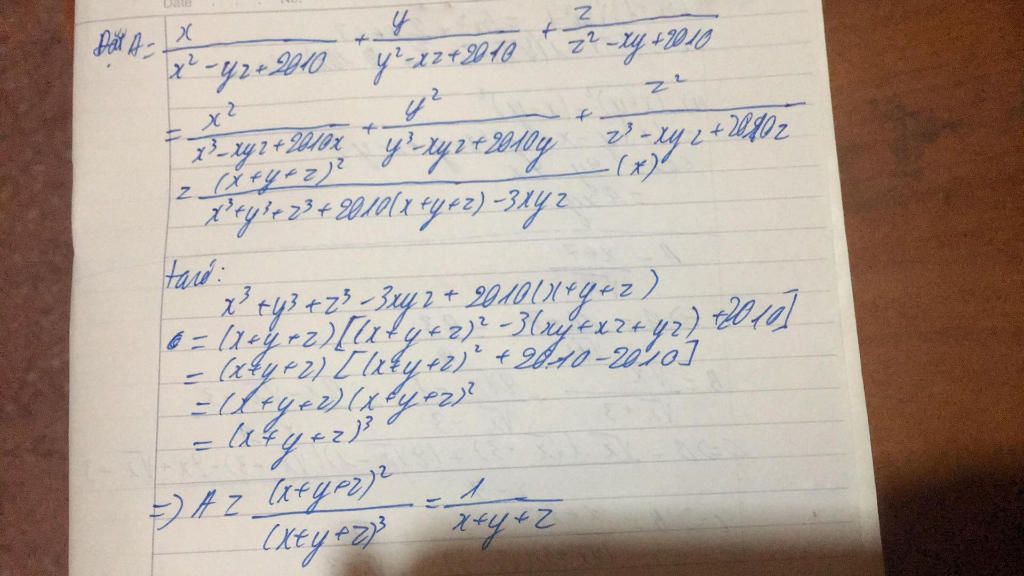 Date No.
Đặt A = x/(x² - yz + 2010) + y/(y² - xz + 2010) + z/(z² - xy + 2010)
= x²/(x³ - xyz + 2010x) + y²/(y³ - xyz + 2010y) + z²/(z³ - xyz + 2010z)
≥ (x+y+z)²/(x³+y³+z³+2010(x+y+z) - 3xyz) (x)
ta có:
x³ + y³ + z³ - 3xyz + 2010(x+y+z)
= (x+y+z)[(x+y+z)² - 3(xy+xz+yz) + 2010]
= (x+y+z)[(x+y+z)² + 2010 - 2010]
= (x+y+z)(x+y+z)²
= (x+y+z)³
=) A ≥ (x+y+z)²/(x+y+z)³ = 1/(x+y+z)